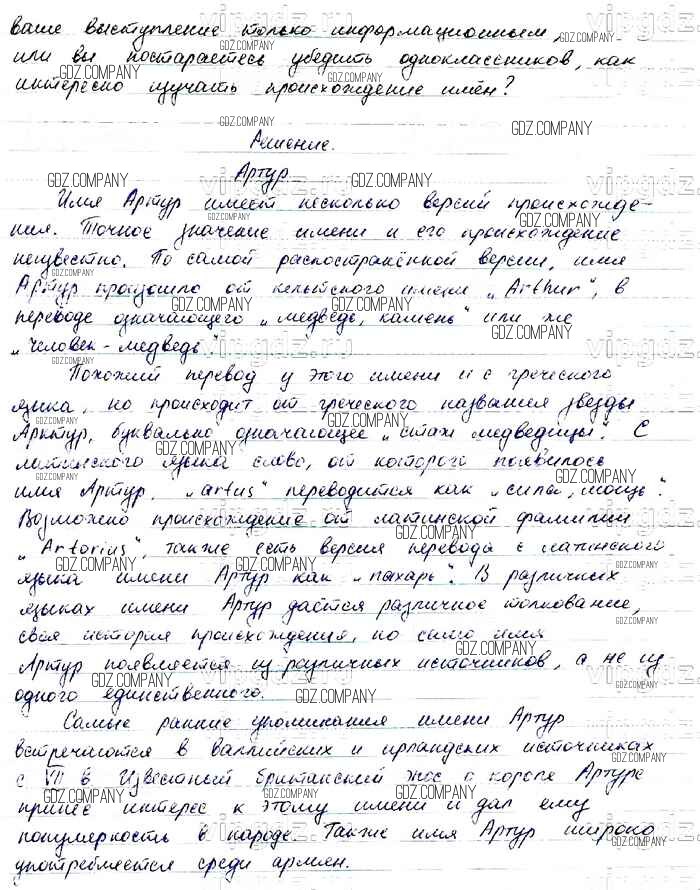 ваше выступление только информационным,
или вы постараетесь убедить одноклассников, как
интересно изучать происхождение имён?
Решение.
Артур.
Имя Артур имеет несколько версий происхожде-
ния. Точное значение имени и его происхождение
неизвестно. По самой распространённой версии, имя
Артур произошло от кельтского имени „Arthur", в
переводе означающего „медведь, камень" или же
„человек-медведь".
Похожий перевод у этого имени и с греческого
языка, но происходит от греческого названия звезды
Арктур, буквально означающее „страж медведицы". С
латинского языка слово, от которого появилось
имя Артур, „artus" переводится как „сила, мощь".
Возможно происхождение от латинской фамилии
„Artorius", также есть версия перевода с латинского
языка имени Артур как „пахарь". В различных
языках имени Артур даётся различное толкование,
своя история происхождения, но само имя
Артур появляется из различных источников, а не из
одного единственного.
Самые ранние упоминания имени Артур
встречаются в валлийских и ирландских источниках
с VII в. Известный британский эпос о короле Артуре
принес интерес к этому имени и дал ему
популярность в народе. Также имя Артур широко
употребляется среди армян.